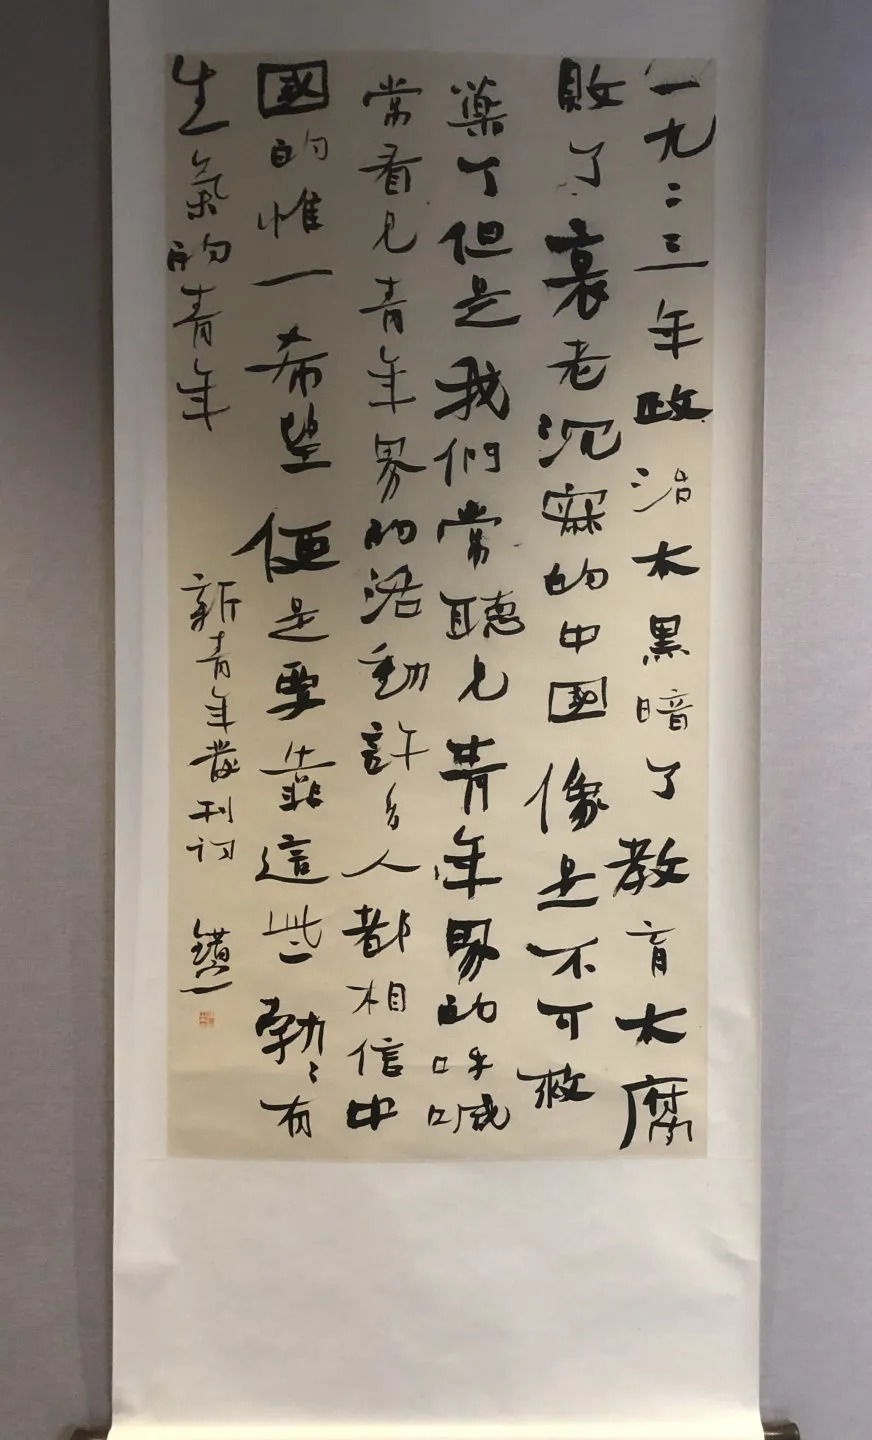 一九二三年政治太黑暗了教育太腐
敗了衰老沉寂的中國像是不可救
藥了但是我們常聽見青年界的呼喊
常看見青年界的活動許多人都相信中
國的惟一希望便是要靠這些勃〻有
生氣的青年
新青年發刊詞